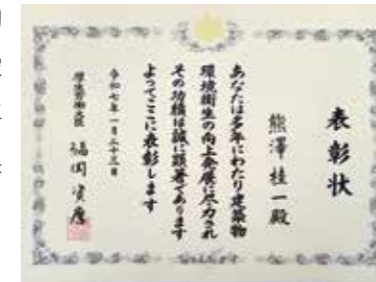 表彰状
熊澤桂一殿
あなたは多年にわたり建築物
環境衛生の向上発展に尽力され
その功績は誠に顕著であります
よってここに表彰します
令和七年一月二十三日
厚生労働大臣 福岡資麿